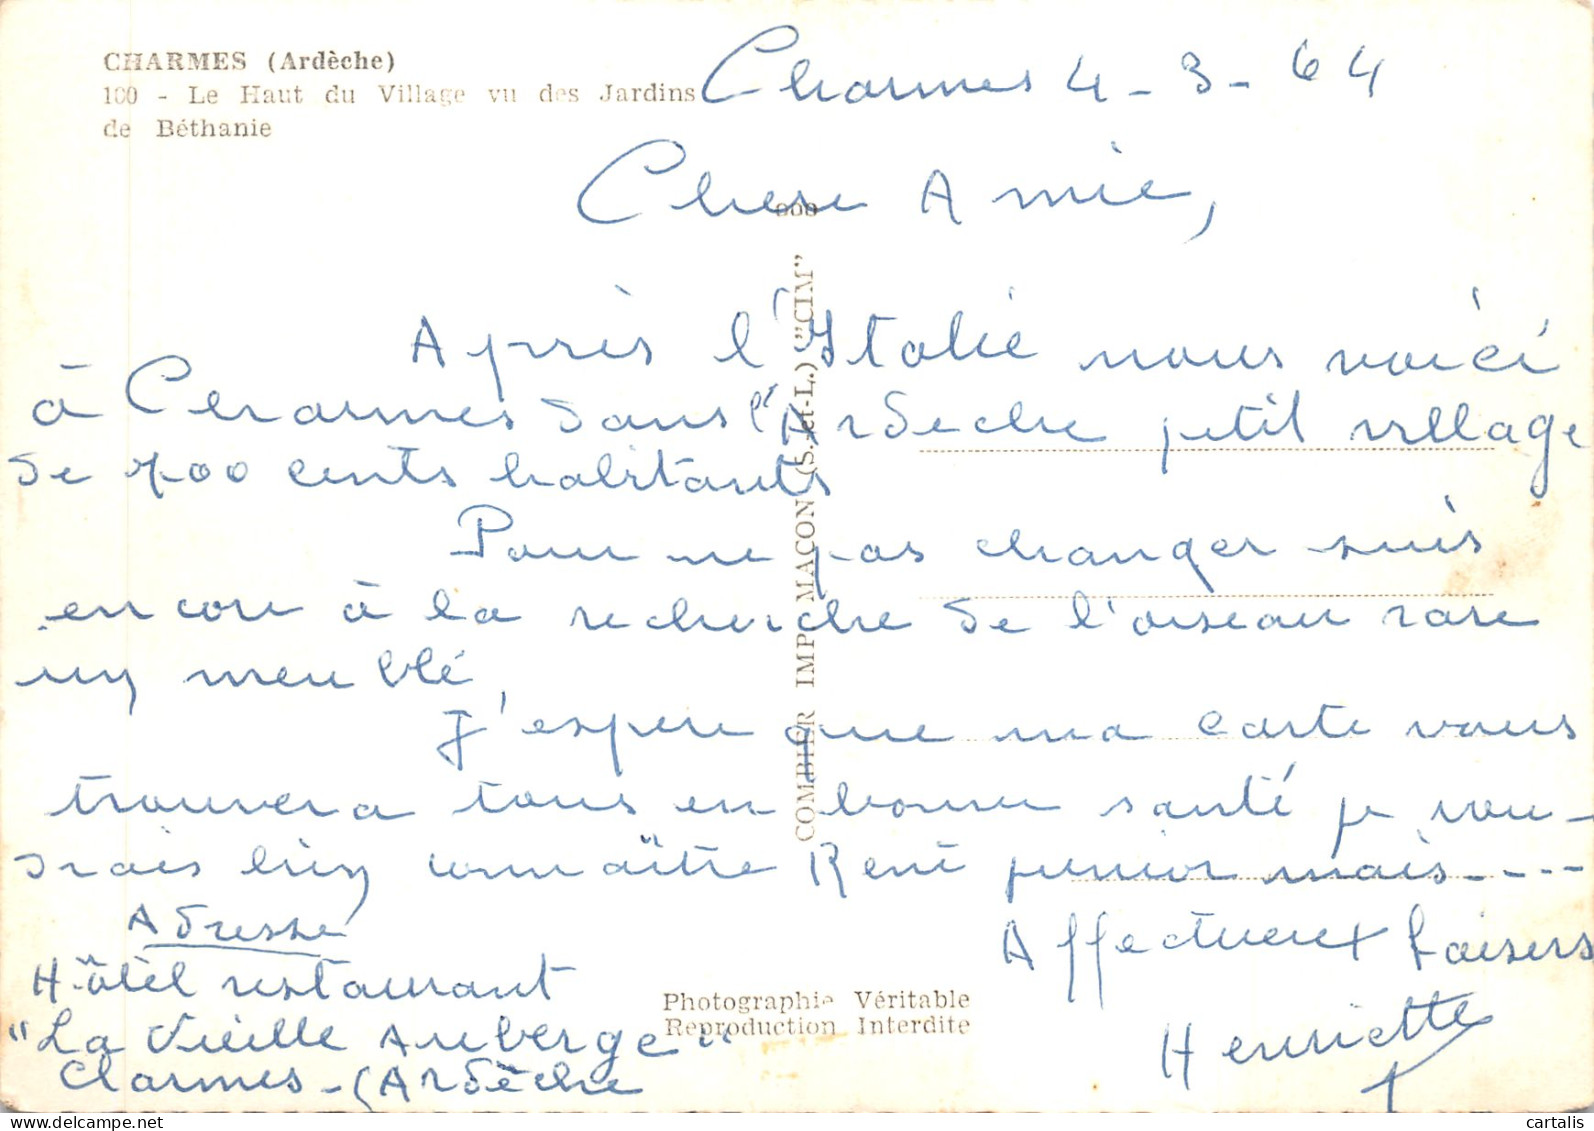 CHARMES (Ardèche)
100 - Le Haut du Village vu des Jardins
de Béthanie
Charmes 4-3-64
Chere Amie,
Après l'Italie nous voici
à Charmes dans l'Ardeche petit village
de 700 cents habitants
Pour ne pas changer suis
encore à la recherche de l'oiseau rare
un meublé,
J'espere que ma carte vous
trouvera tous en bonne santé je vou-
drais bien connaître René junior mais----
Affectueux baisers
Henriette
Adresse
Hôtel restaurant
"La Vieille Auberge"
Charmes-(Ardèche
COMBIER IMP MACON (S.-et-L.) ("CIM"
Photographie Véritable
Reproduction Interdite
cartalis.com